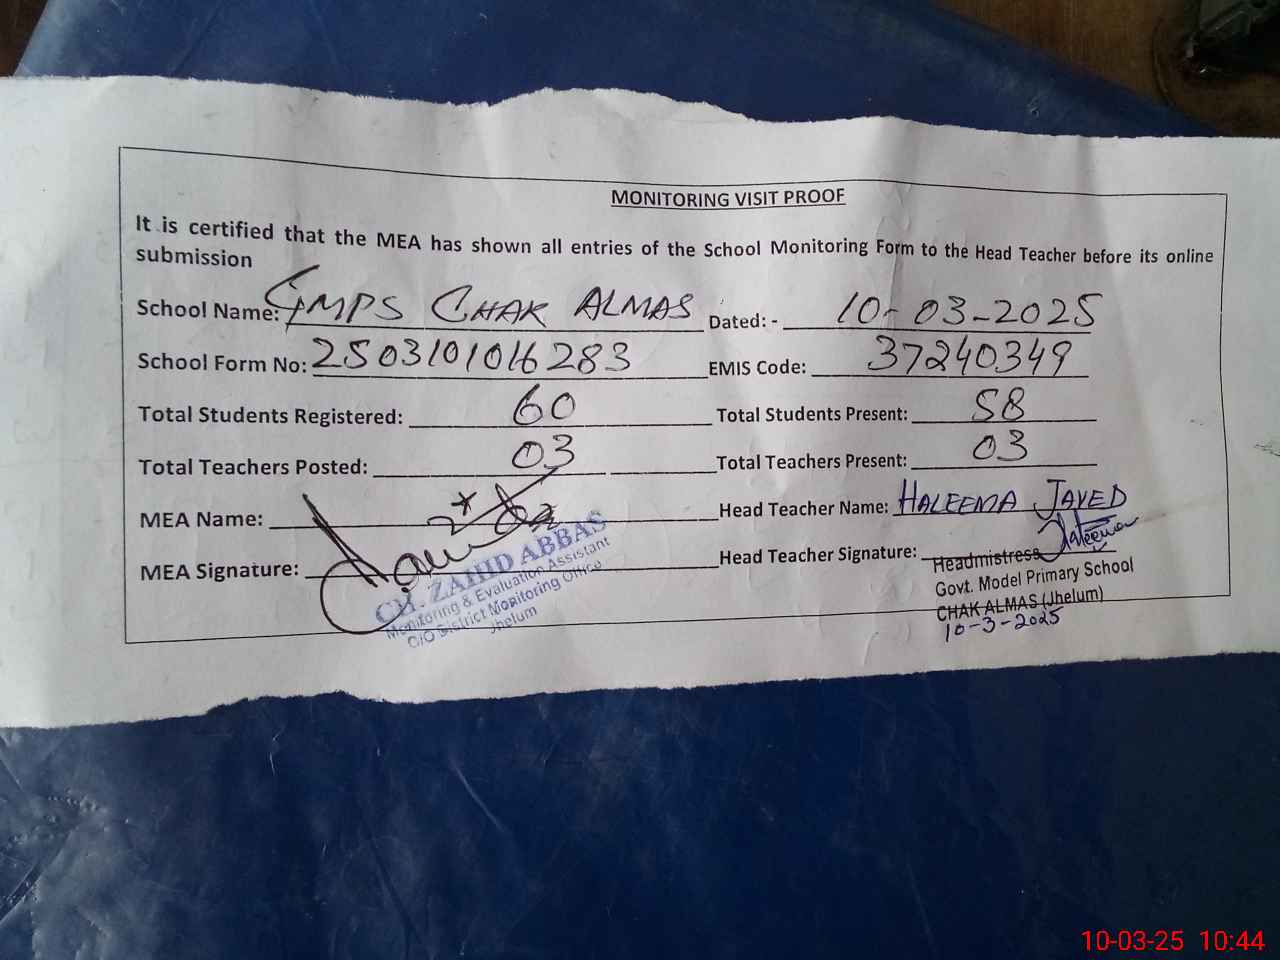 MONITORING VISIT PROOF
It is certified that the MEA has shown all entries of the School Monitoring Form to the Head Teacher before its online
submission
School Name: GMPS CHAK ALMAS Dated: - 10-03-2025
School Form No: 2503101016283 EMIS Code: 37240349
Total Students Registered: 60 Total Students Present: 58
Total Teachers Posted: 03 Total Teachers Present: 03
MEA Name: Head Teacher Name: HALEEMA JAVED
MEA Signature: Head Teacher Signature: Haleema
CH. ZAHID ABBAS
Monitoring & Evaluation Assistant
C/O District Monitoring Office
Jhelum
Headmistress
Govt. Model Primary School
CHAK ALMAS (Jhelum)
10-3-2025
10-03-25 10:44